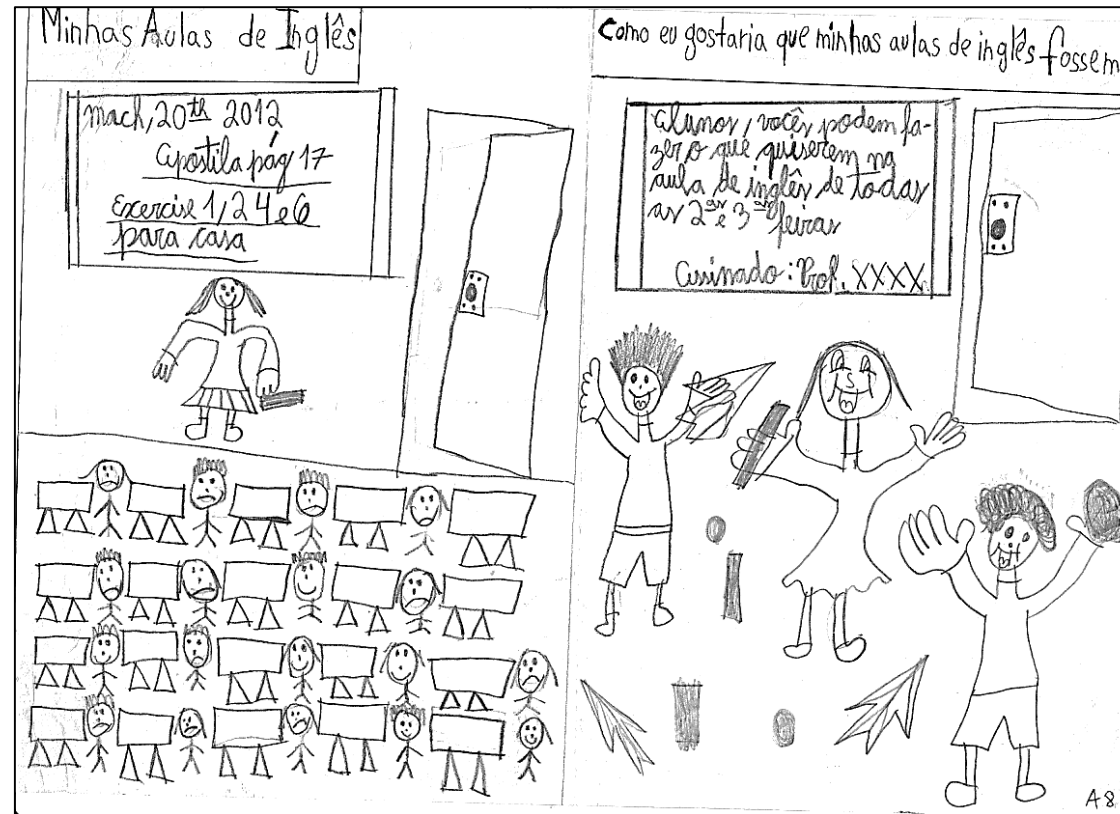 Minhas Aulas de Inglês
mach, 20th 2012
Apostila pág 17
Exercise 1, 2 4 e 6
para casa
Como eu gostaria que minhas aulas de inglês fossem
Alunos, vocês podem fa-
zer o que quiserem na
aula de inglês de todas
as 2as e 3as feiras
Assinado: Prof. XXXX
A8